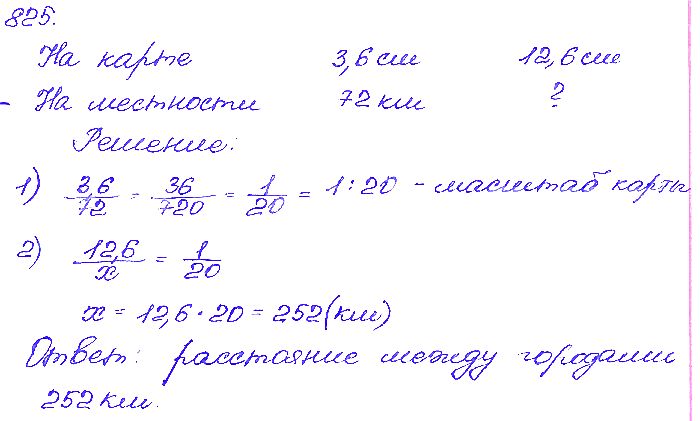 825.
На карте 3,6 см 12,6 см
- На местности 72 км ?
Решение:
1) 3,6/72 = 36/720 = 1/20 = 1:20 - масштаб карты
2) 12,6/x = 1/20
x = 12,6 · 20 = 252 (км)
Ответ: расстояние между городами
252 км.